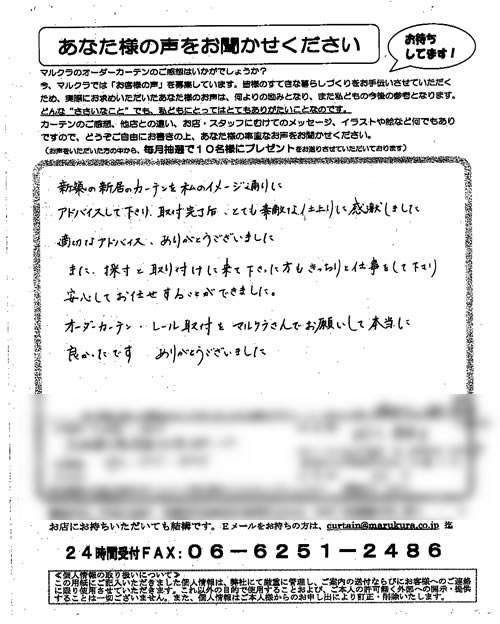 あなた様の声をお聞かせください
お待ち
してます!
マルクラのオーダーカーテンのご感想はいかがでしょうか?
今、マルクラでは「お客様の声」を募集しています。皆様のすてきな暮らしづくりをお手伝いさせていただく
ため、実際にお求めいただいたあなた様のお声は、何よりの励みとなり、また私どもの今後の参考となります。
どんな“ささいなこと”でも、私どもにとってはとてもありがたいことなのです。
カーテンのご感想、他店との違い、お店・スタッフにむけてのメッセージ、イラストや絵など何でもあり
ですので、どうぞご自由にお書きの上、あなた様の率直なお声をお聞かせください。
(お声をいただいた方の中から、毎月抽選で10名様にプレゼントをお送りさせていただいております)
新築の新居のカーテンを私のイメージ通りに
アドバイスして下さり、取付完了后、とても素敵な仕上りに感激しました
適切なアドバイス、ありがとうございました
また、採寸と取り付けに来て下さった方もきっちりと仕事をして下さり
安心してお任せすることができました。
オーダーカーテン・レール取付をマルクラさんでお願いして本当に
良かったです ありがとうございました
お店にお持ちいただいても結構です。Eメールをお持ちの方は、curtain@marukura.co.jp 迄
24時間受付FAX:06-6251-2486
<個人情報の取り扱いについて>
この用紙にご記入いただきました個人情報は、弊社にて厳重に管理し、ご案内の送付ならびにお客様へのご連絡
に限り使用させていただきます。これ以外の目的で使用することおよび、ご本人の許可無く外部への開示・提供
することは一切ございません。また、個人情報はご本人様からのお申し出により訂正・削除いたします。